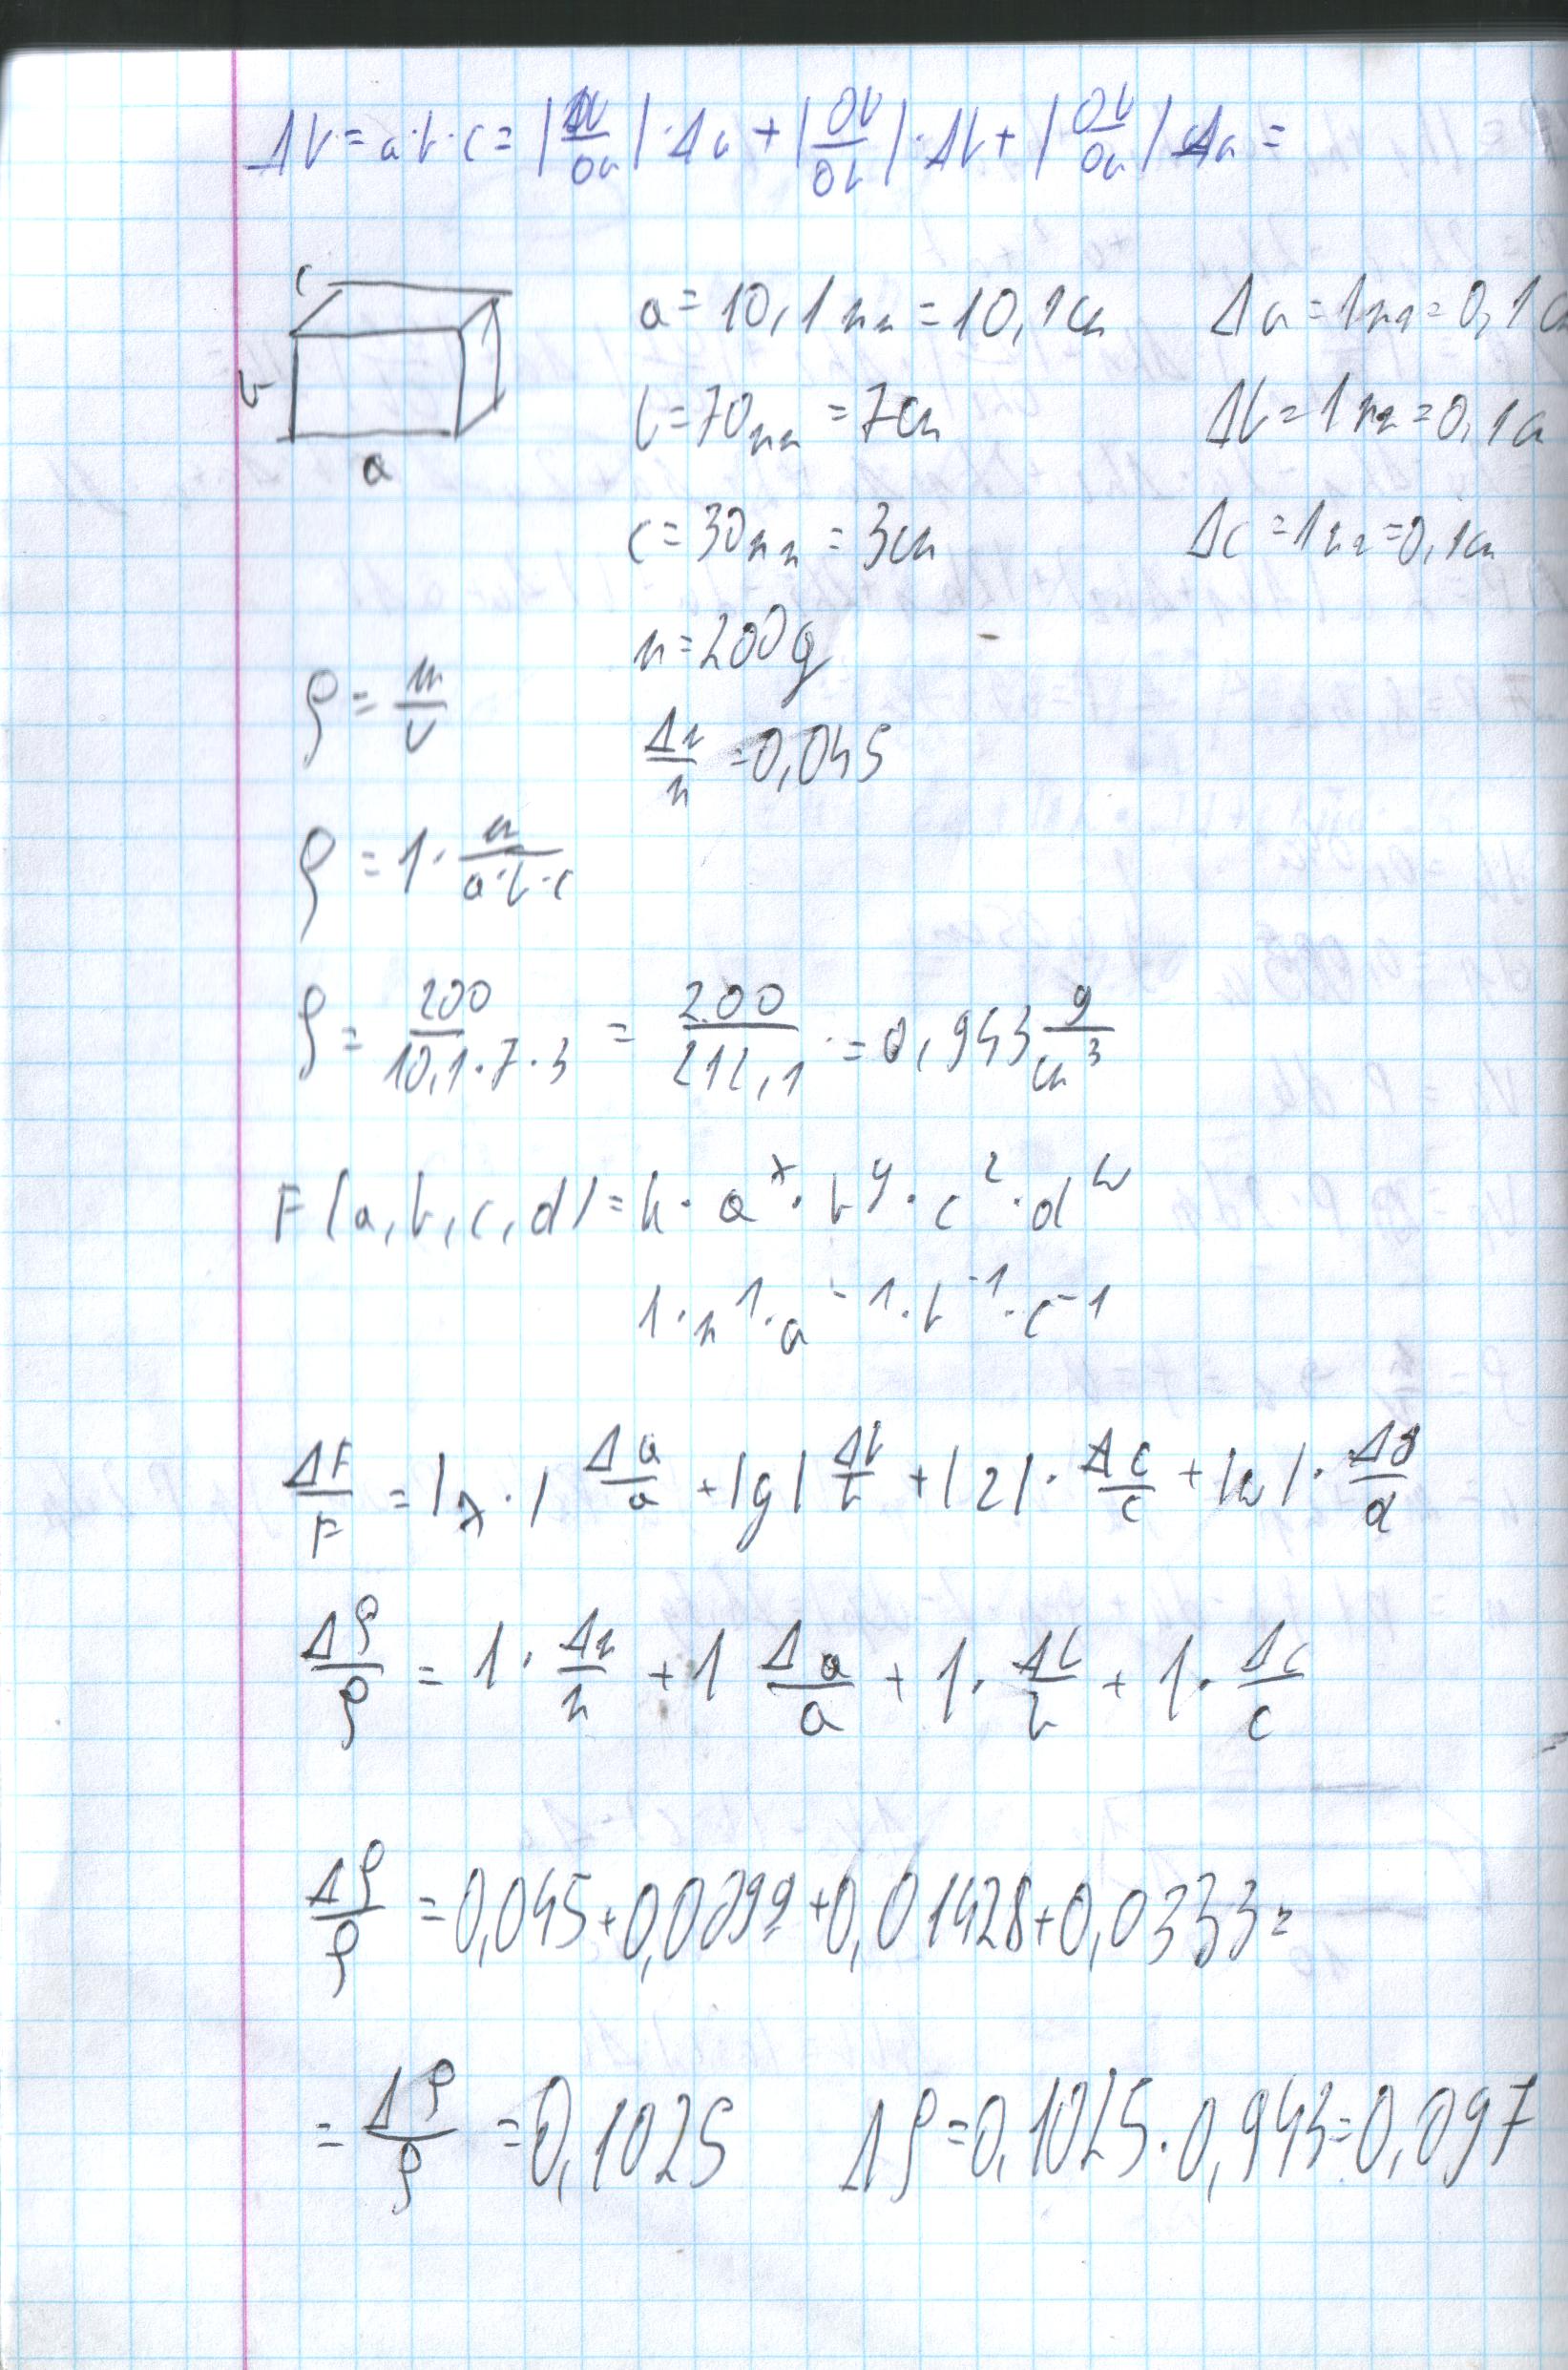 ΔV = a·b·c = |ΔV/∂a|·Δa + |∂V/∂b|·Δb + |∂V/∂a| Δa =
c
b
a
a = 10,1mm = 10,1cm Δa = 1mm = 0,1c
b = 70mm = 7cm Δb = 1mm = 0,1cm
c = 30mm = 3cm Δc = 1mm = 0,1cm
m = 200g
ρ = m/V
Δm/m = 0,045
ρ = 1· m/a·b·c
ρ = 200/10,1·7·3 = 200/212,1 = 0,943 g/cm³
F(a, b, c, d) = k· a^x · b^y · c^z · d^w
1·m^1·a^-1·b^-1·c^-1
ΔF/F = |x·| Δa/a + |y| Δb/b + |z|· Δc/c + |w|· Δd/d
Δρ/ρ = 1· Δm/m + 1 Δa/a + 1· Δb/b + 1· Δc/c
Δρ/ρ = 0,045 + 0,0099 + 0,01428 + 0,0333 =
= Δρ/ρ = 0,1025 Δρ = 0,1025·0,943 = 0,097